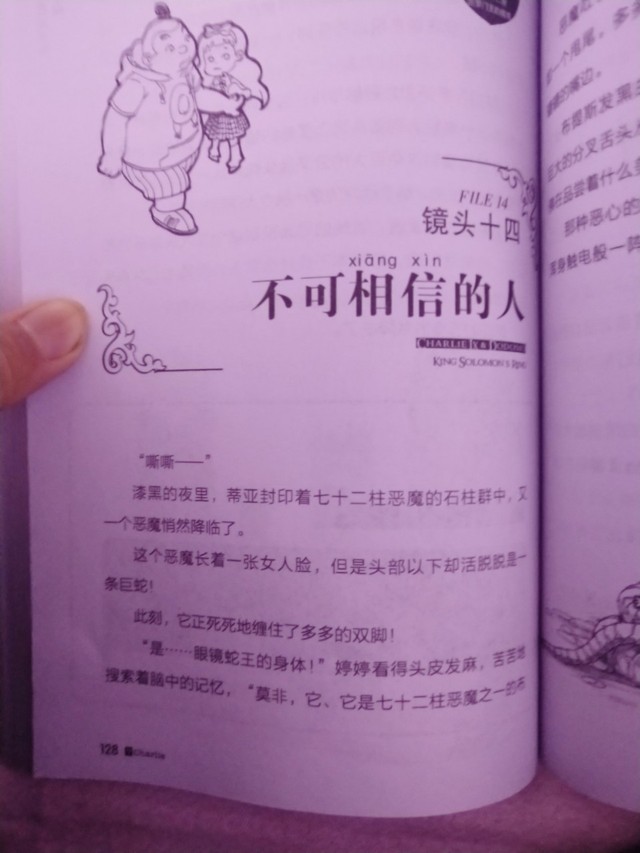 FILE 14
镜头十四
xiāng xìn
不可相信的人
CHARLIE IX & DODOMO
KING SOLOMON'S RING
“嘶嘶——”
漆黑的夜里，蒂亚封印着七十二柱恶魔的石柱群中，又
一个恶魔悄然降临了。
这个恶魔长着一张女人脸，但是头部以下却活脱脱是一
条巨蛇！
此刻，它正死死地缠住了多多的双脚！
“是……眼镜蛇王的身体！”婷婷看得头皮发麻，苦苦地
搜索着脑中的记忆，“莫非，它、它是七十二柱恶魔之一的布
128 Charlie
恶魔
一个甩尾。多
的嘴边。
布提斯发黑的
大的分叉舌头
在品尝着什么
那种恶心的
浑身触电般一阵